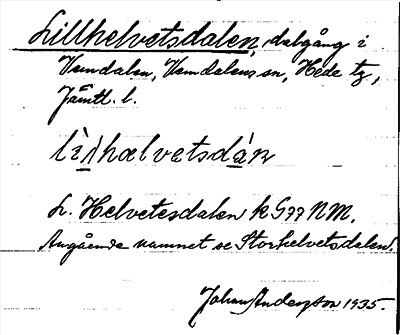 Lillhelvetsdalen, dalgång i
Vemdalen, Vemdalens sn, Hede tg,
Jämtl. l.
lìlhælvetsdàn
L. Helvetesdalen k G77 NM.
Angående namnet se Storhelvetsdalen.
Johan Anderson 1935.